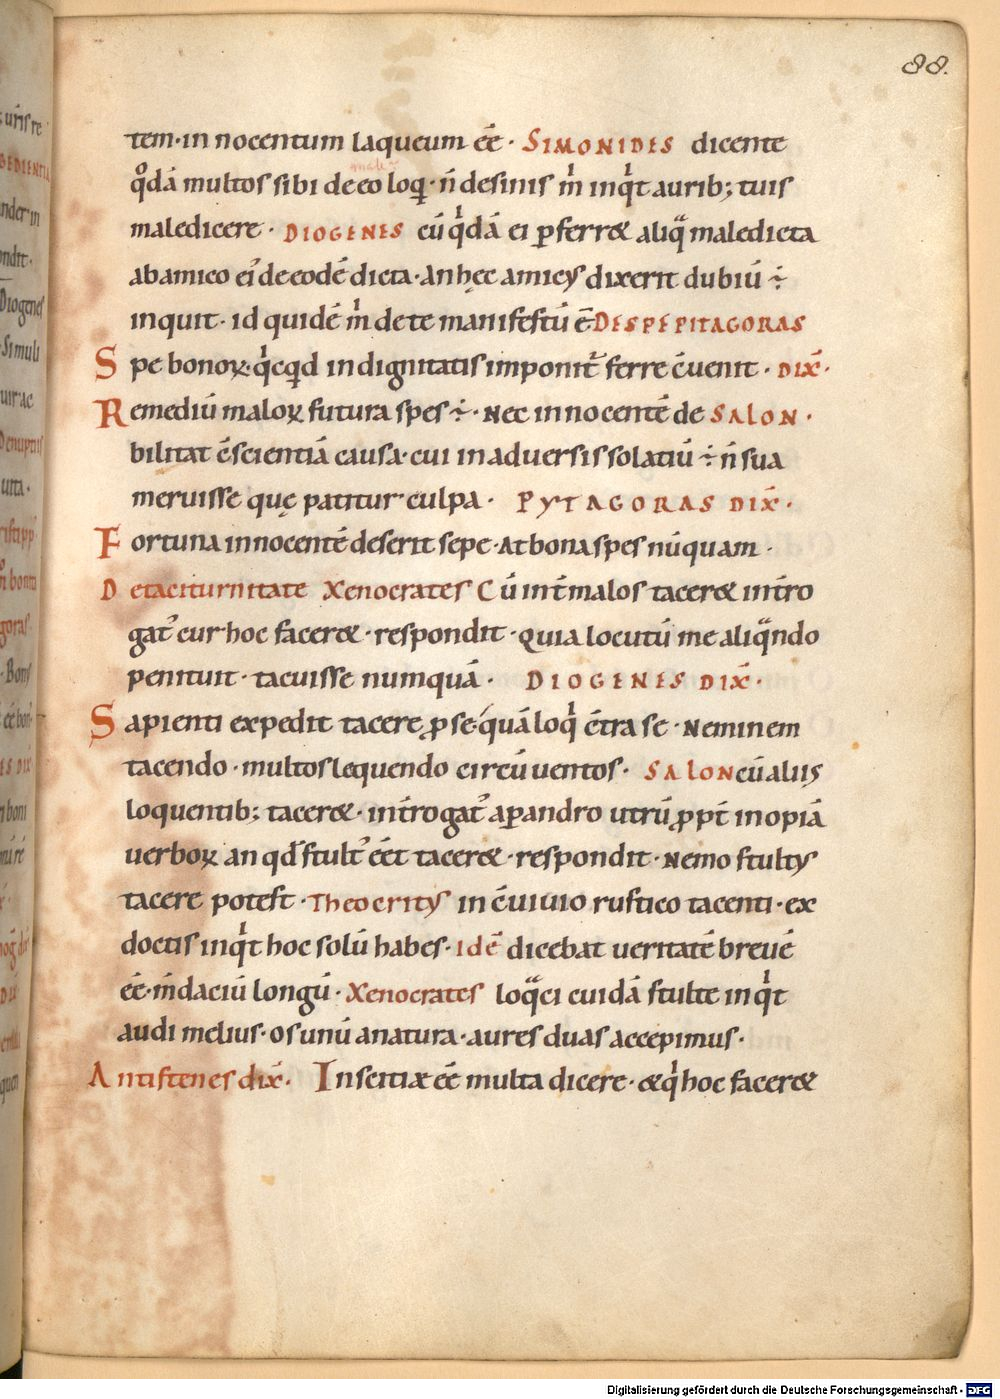 88.
tem·in nocentum laqueum eē· SIMONIDES dicente
qͦdā multos sibi de eo loqͥ· n̄ desinis m̍ inqͥt aurib; tuis
male
maledicere· DIOGENES cū qͥdā ei ꝑferret aliqͣ maledicta
abamico eiꝰ de eodē dicta· an hęc amicus dixerit dubiū ÷
inquit· id quidē m̍ de te manifestū ē DESPE PITAGORAS
Spe bonoꝝ qͥcqd indignitatis imponit᷑ ferre c̄uenit· DIX̄·
Remediū maloꝝ futura spes ÷· Nec innocentē de SALON·
bilitat c̄scientiā causa· cui in adversis solatiū ÷ n̄ sua
meruisse quę patitur culpa· PYTAGORAS DIX̄·
Fortuna innocentē deserit sepe· At bona spes nūquam·
De taciturnitate Xenocrates Cū int̄ malos taceret intro
gat᷑ cur hoc faceret· respondit· Quia locutū me aliqͣndo
penituit· tacuisse numquā· DIOGENES DIX̄·
Sapienti expedit tacere ꝓ se· quā loqͥ c̄tra se· Neminem
tacendo· multos lequendo circūuentos· SALON cū aliis
loquentib; taceret· int̄rogat᷑ aꝑandro utrū ꝓpt̄ inopiā
uerboꝝ an qd̄ stult᷑ eēt taceret· respondit· Nemo stultus
tacere potest· Theocritus in c̄uiuio rustico tacenti· ex
doctis inqͥt hoc solū habes· idē dicebat veritatē breuē
eē· m̄daciū longū· Xenocrates loqͣci cuidā stulte inqͥt
audi melius· os unū anatura· aures duas accepimus·
Antistenes dix̄· Inscitiæ eē multa dicere· & qͥ hoc faceret
Digitalisierung gefördert durch die Deutsche Forschungsgemeinschaft - DFG